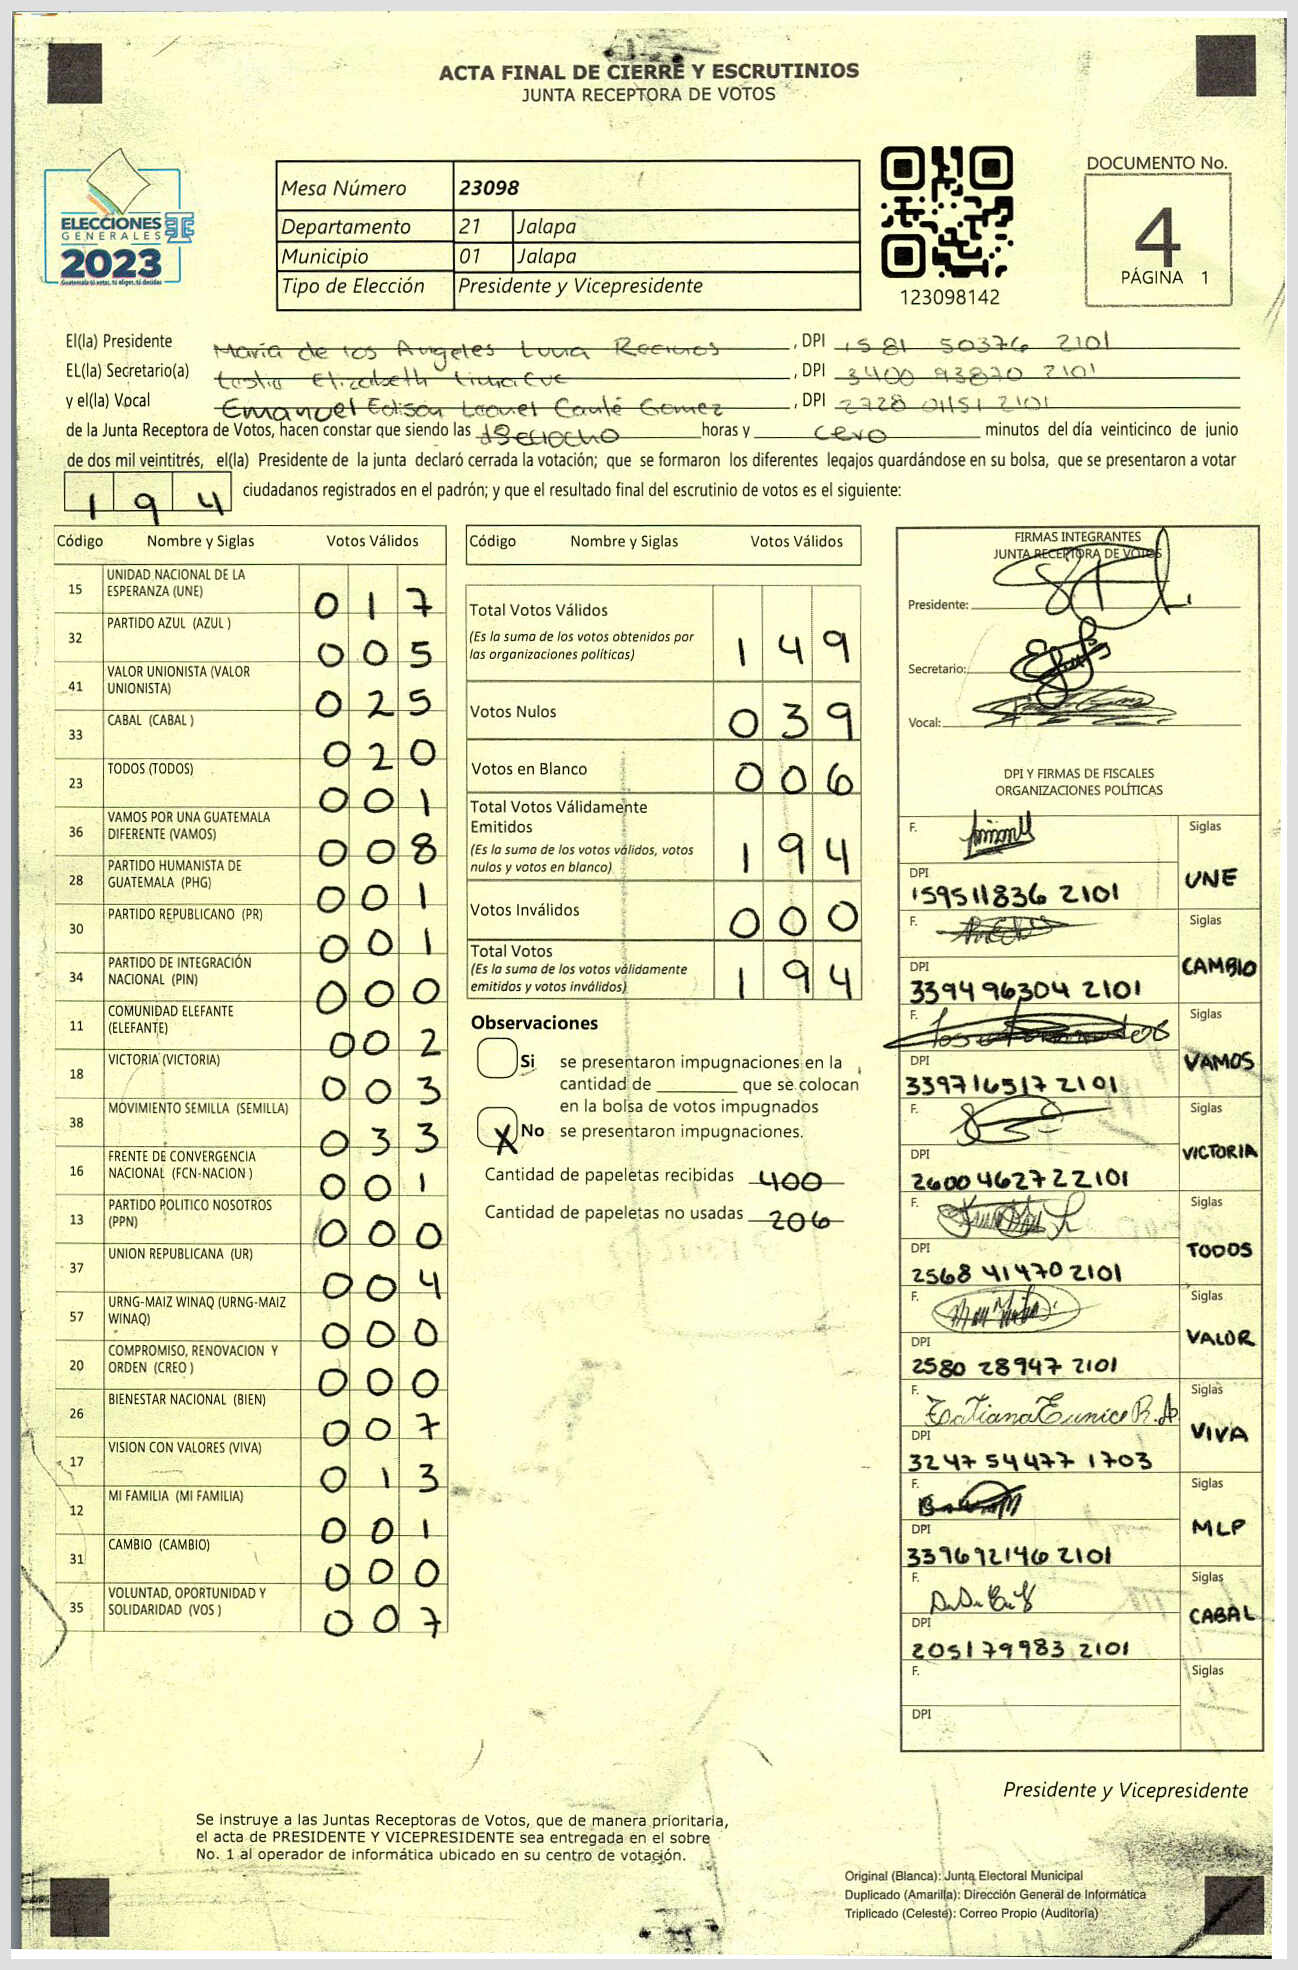 ACTA FINAL DE CIERRE Y ESCRUTINIOS
JUNTA RECEPTORA DE VOTOS
ELECCIONES
GENERALES
2023
Guatemala tú votas, tú eliges, tú decides
Mesa Número 23098
Departamento 21 Jalapa
Municipio 01 Jalapa
Tipo de Elección Presidente y Vicepresidente
123098142
DOCUMENTO No.
4
PÁGINA 1
El(la) Presidente María de los Angeles Luna Recinos, DPI 1581 50376 2101
EL(la) Secretario(a) Elizabeth, DPI 3400 93870 2101
y el(la) Vocal Emanuel Edison Leonel Canté Gomez, DPI 2728 01151 2101
de la Junta Receptora de Votos, hacen constar que siendo las dieciocho horas y cero minutos del día veinticinco de junio
de dos mil veintitrés, el(la) Presidente de la junta declaró cerrada la votación; que se formaron los diferentes legajos guardándose en su bolsa, que se presentaron a votar
194 ciudadanos registrados en el padrón; y que el resultado final del escrutinio de votos es el siguiente:
Código Nombre y Siglas Votos Válidos
15 UNIDAD NACIONAL DE LA ESPERANZA (UNE) 017
32 PARTIDO AZUL (AZUL ) 005
41 VALOR UNIONISTA (VALOR UNIONISTA) 025
33 CABAL (CABAL ) 020
23 TODOS (TODOS) 001
36 VAMOS POR UNA GUATEMALA DIFERENTE (VAMOS) 008
28 PARTIDO HUMANISTA DE GUATEMALA (PHG) 001
30 PARTIDO REPUBLICANO (PR) 001
34 PARTIDO DE INTEGRACIÓN NACIONAL (PIN) 000
11 COMUNIDAD ELEFANTE (ELEFANTE) 002
18 VICTORIA (VICTORIA) 003
38 MOVIMIENTO SEMILLA (SEMILLA) 033
16 FRENTE DE CONVERGENCIA NACIONAL (FCN-NACION ) 001
13 PARTIDO POLITICO NOSOTROS (PPN) 000
37 UNION REPUBLICANA (UR) 004
57 URNG-MAIZ WINAQ (URNG-MAIZ WINAQ) 000
20 COMPROMISO, RENOVACION Y ORDEN (CREO ) 000
26 BIENESTAR NACIONAL (BIEN) 007
17 VISION CON VALORES (VIVA) 013
12 MI FAMILIA (MI FAMILIA) 001
31 CAMBIO (CAMBIO) 000
35 VOLUNTAD, OPORTUNIDAD Y SOLIDARIDAD (VOS ) 007
Código Nombre y Siglas Votos Válidos
Total Votos Válidos 149
(Es la suma de los votos obtenidos por
las organizaciones políticas)
Votos Nulos 039
Votos en Blanco 006
Total Votos Válidamente
Emitidos 194
(Es la suma de los votos válidos, votos
nulos y votos en blanco)
Votos Inválidos 000
Total Votos 194
(Es la suma de los votos válidamente
emitidos y votos inválidos)
Observaciones
Si se presentaron impugnaciones en la
cantidad de ________ que se colocan
en la bolsa de votos impugnados
X No se presentaron impugnaciones.
Cantidad de papeletas recibidas 400
Cantidad de papeletas no usadas 206
FIRMAS INTEGRANTES
JUNTA RECEPTORA DE VOTOS
Presidente:
Secretario:
Vocal:
DPI Y FIRMAS DE FISCALES
ORGANIZACIONES POLÍTICAS
F. Siglas
DPI UNE
159511836 2101
F. Siglas
DPI CAMBIO
3394 96304 2101
F. Siglas
DPI VAMOS
339716517 2101
F. Siglas
DPI VICTORIA
2600 46272 2101
F. Siglas
DPI TODOS
2568 41470 2101
F. Siglas
DPI VALOR
2580 28947 2101
F. Tatiana Eunice R. A Siglas
DPI VIVA
3247 54477 1703
F. Siglas
DPI MLP
339692146 2101
F. Siglas
DPI CABAL
205179983 2101
F. Siglas
DPI
Presidente y Vicepresidente
Se instruye a las Juntas Receptoras de Votos, que de manera prioritaria,
el acta de PRESIDENTE Y VICEPRESIDENTE sea entregada en el sobre
No. 1 al operador de informática ubicado en su centro de votación.
Original (Blanca): Junta Electoral Municipal
Duplicado (Amarilla): Dirección General de Informática
Triplicado (Celeste): Correo Propio (Auditoría)